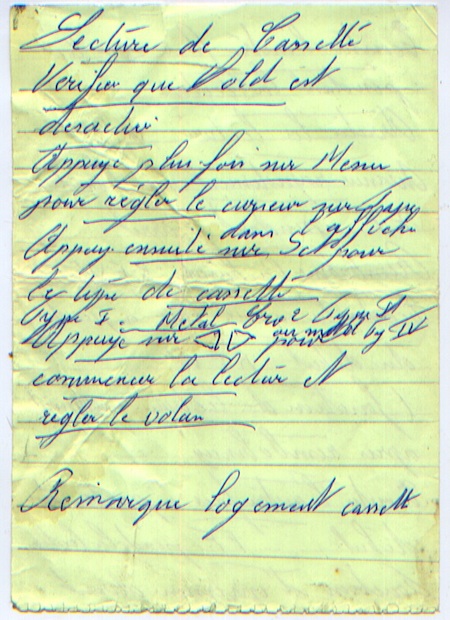 Lecture de Cassette
Verifier que Hold est
desactivé
Appuyé plus fois sur Menu
pour régler le curseur sur
dans affiche
Appuy ensuite sur Set pour
le type de cassette
Type I. Metal CrO2 Type II
ou metal ty IV
Appuyé sur ◁ ▷ pour
commencer la lectur et
régler le volum
Remarque logement cassett